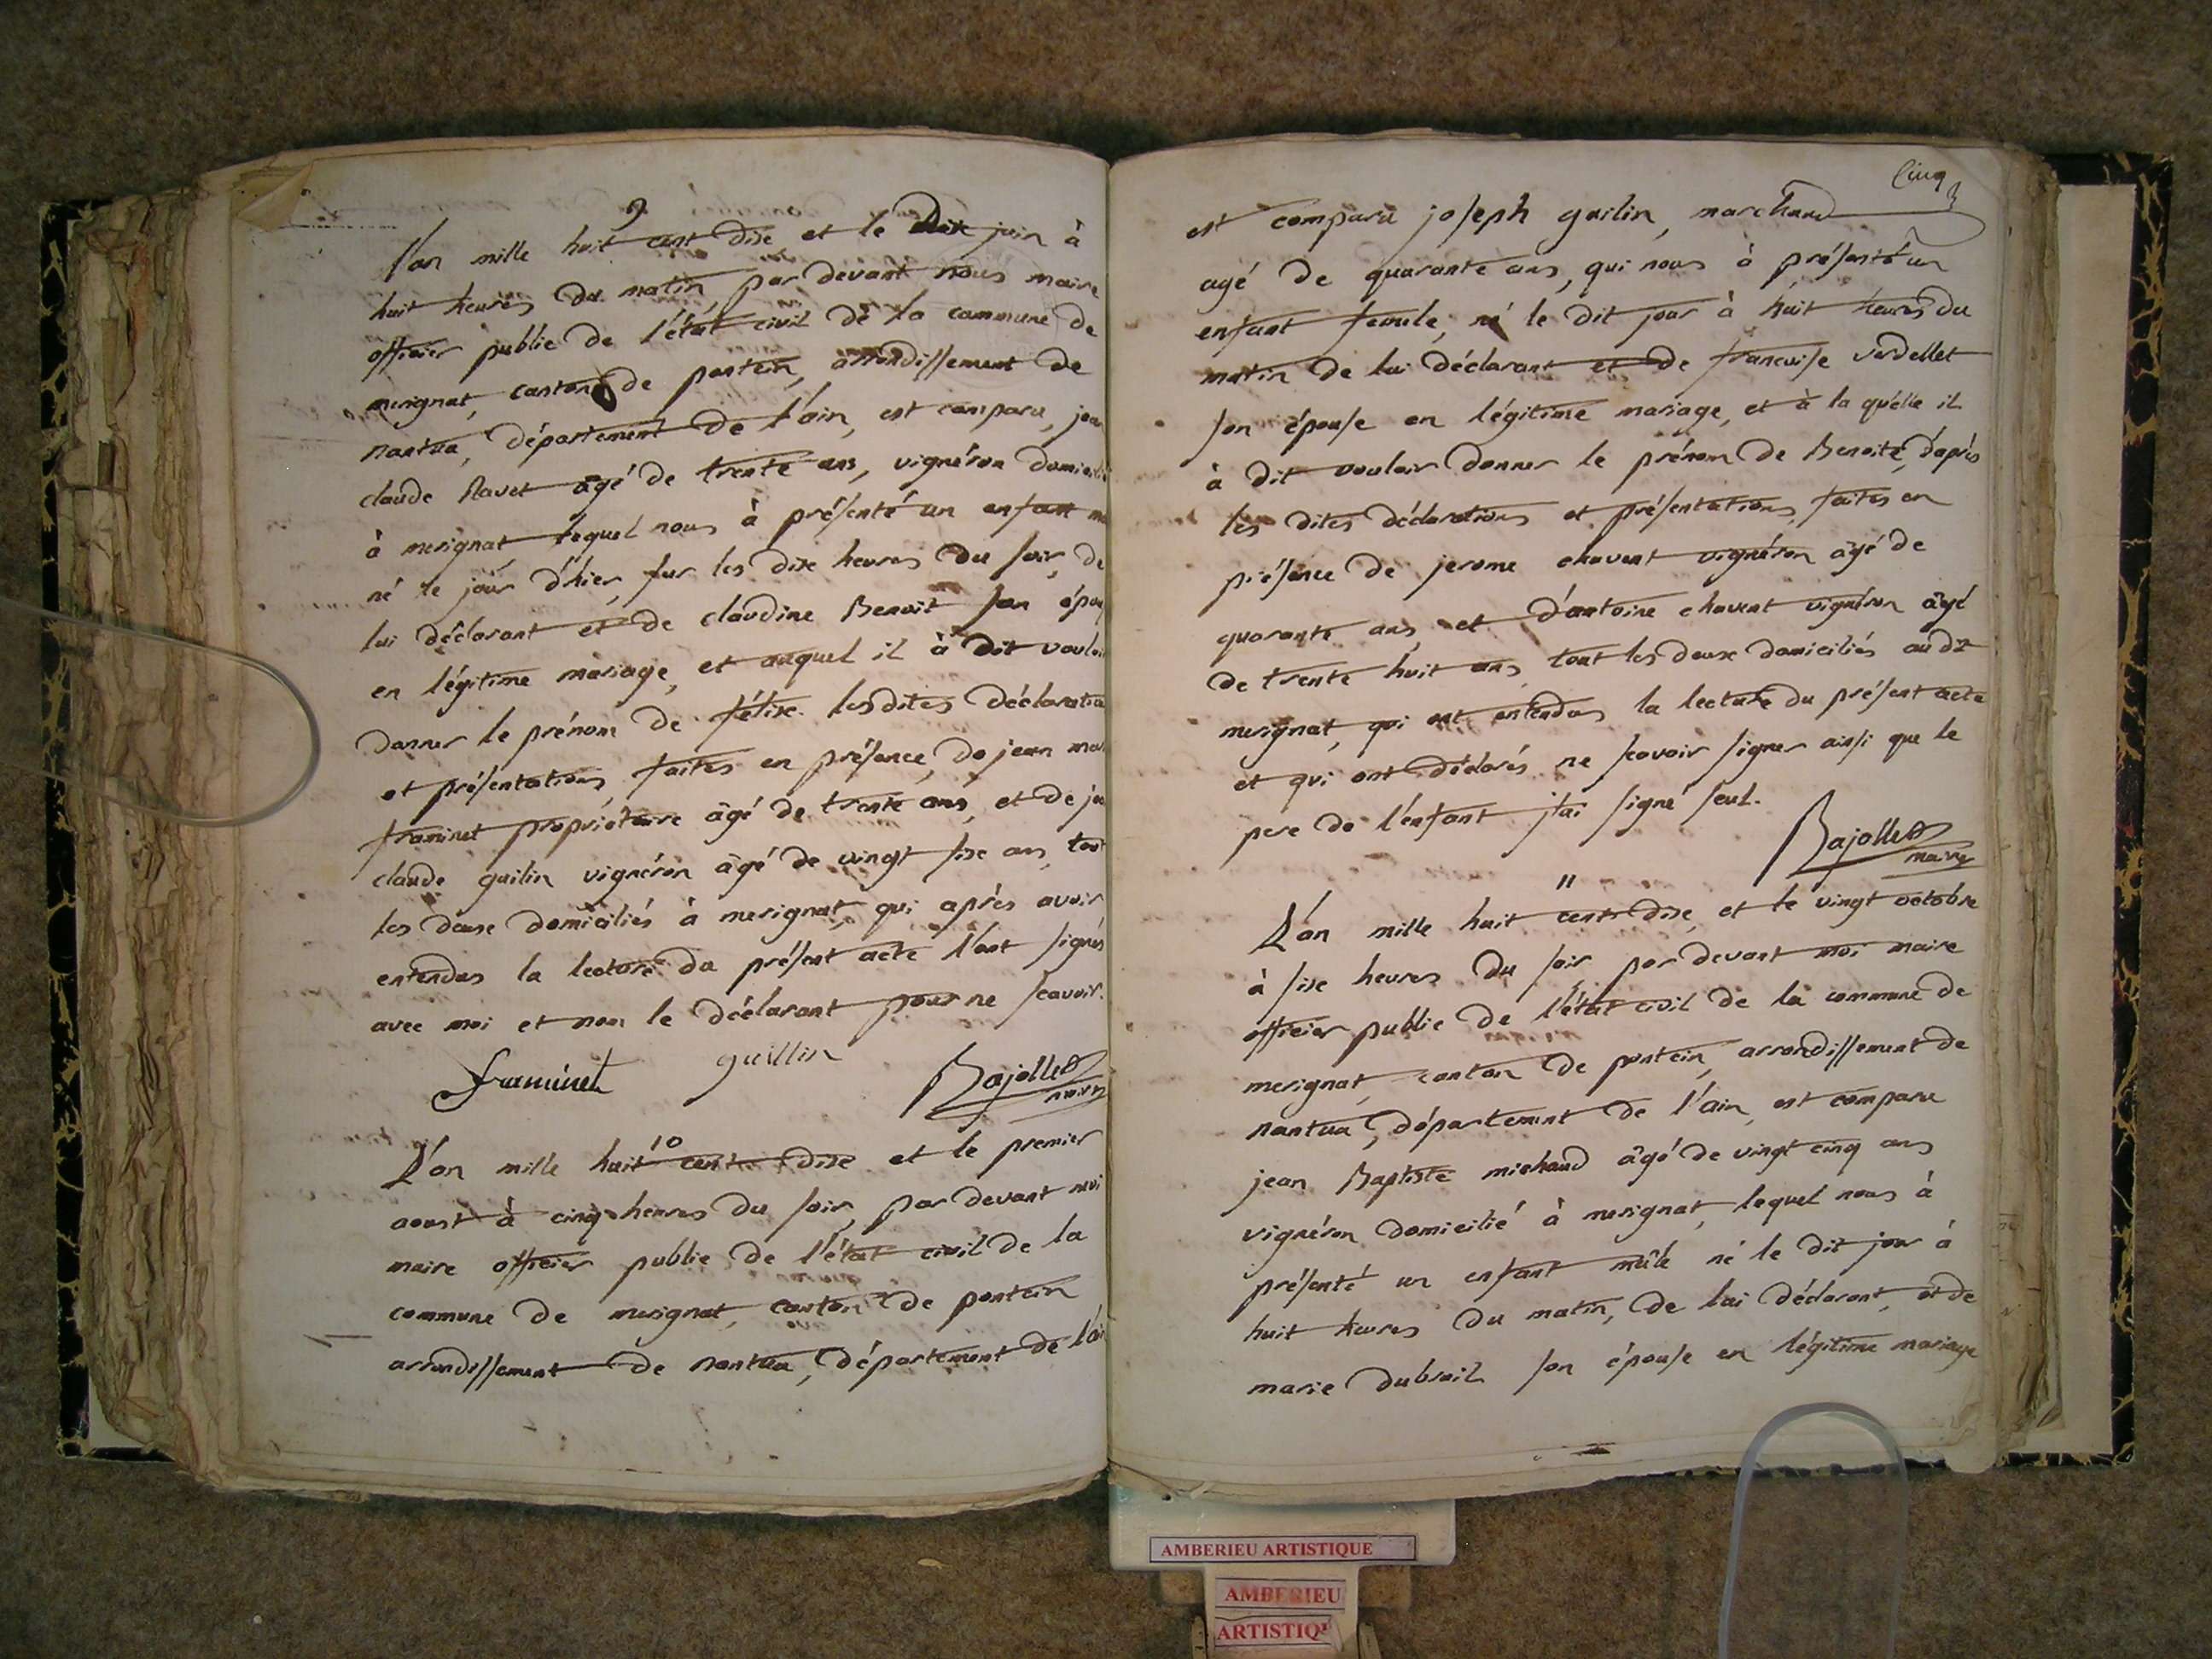 9
L'an mille huit cent dixe et le dixe juin à
huit heures du matin, par devant nous maire
officier public de l'état civil de la commune de
merignat, canton de pontein, arrondissement de
nantua, département de l'ain, est comparu, jean
claude navet âgé de trente ans, vignéron domicilié
à merignat, lequel nous à présenté un enfant
né le jour d'hier, sur les dixe heures du soir, de
lui déclarant et de claudine Benoit son
en légitime mariage, et auquel il à dit
donner le prénom de félixe. les dites déclarations
et présentations faites en présence, de jean
framinet propriétaire âgé de trente ans, et de
claude guilin vignéron âgé de vingt sixe ans, tout
les deuxe domiciliés à merignat, qui après avoir
entendus la lecture du présent acte l'ont signés
avec moi et non le déclarant pour ne scavoir.
framinet guillin Bajollet
maire
10
L'an mille huit cent dixe et le premier
aoust à cinq heures du soir, par devant moi
maire officier public de l'état civil de la
commune de merignat, canton de pontein
arrondissement de nantua, département de l'ain
Cinq
est comparu joseph guilin, marchand
agé de quarante ans, qui nous à présenté un
enfant femele, né le dit jour à huit heures du
matin de lui déclarant et de francoise verdellet
son épouse en légitime mariage, et à la quelle il
à dit vouloir donner le prénom de Benoite, d'après
les dites déclarations et présentations faites en
présence de jerome chavent vignéron âgé de
quarante ans, et d'antoine chavent vignéron âgé
de trente huit ans, tout les deuxe domiciliés au dit
merignat, qui ont entendus la lecture du présent acte
et qui ont déclarés ne scavoir signer ainsi que le
pere de l'enfant j'ai signé seul.
Bajollet
maire
11
L'an mille huit cent dixe, et le vingt octobre
à sixe heures du soir par devant moi maire
officier public de l'état civil de la commune de
merignat, canton de pontein, arrondissement de
nantua, département de l'ain, est comparu
jean Baptiste michaud âgé de vingt cinq ans
vignéron domicilié à merignat, lequel nous à
présenté un enfant mâle né le dit jour à
huit heures du matin, de lui déclarant, et de
marie dubreil son épouse en légitime mariage
AMBERIEU ARTISTIQUE
AMBERIEU
ARTISTIQ